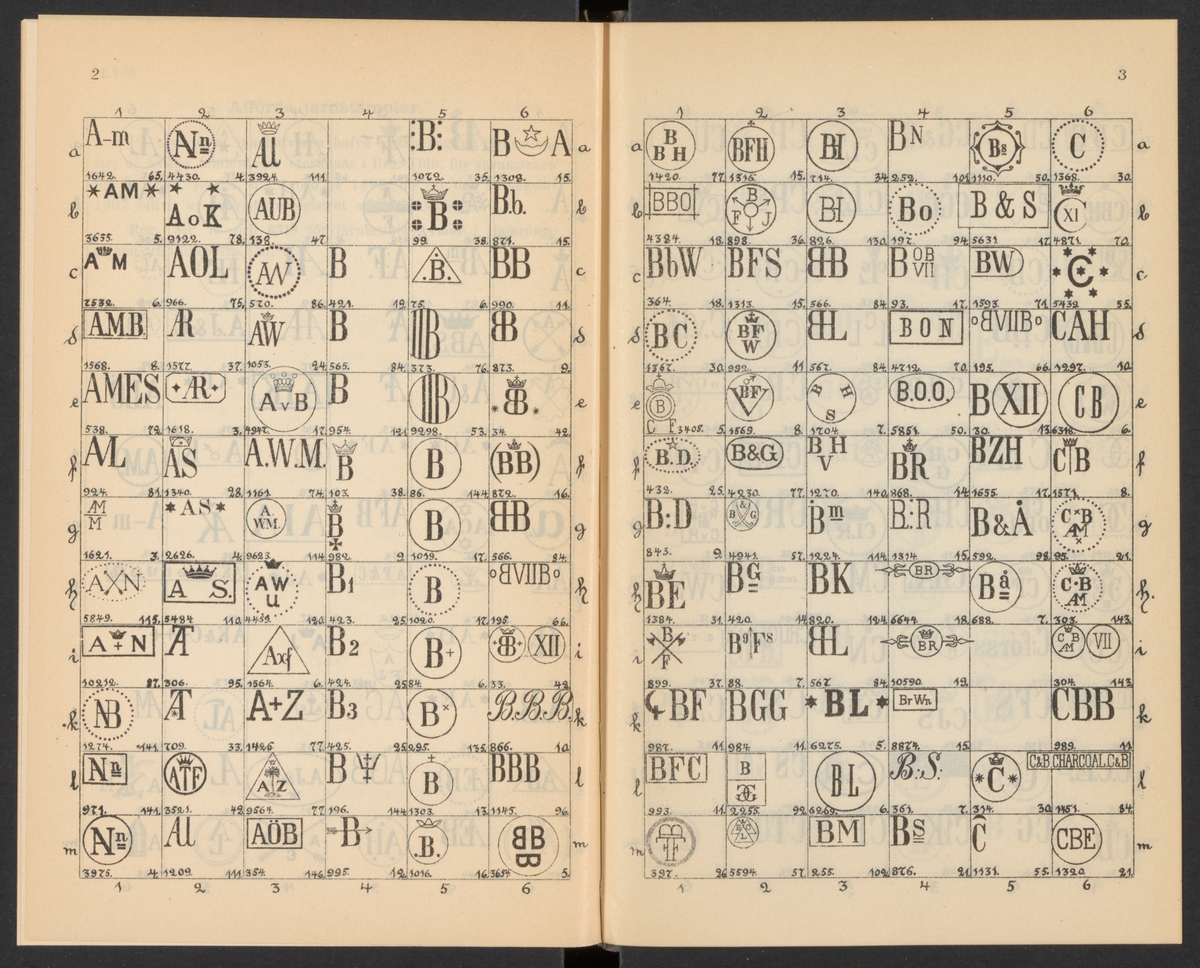 2
1 2 3 4 5 6
a A-m Nn AU :B: B A a
1642. 65. 4430. 4. 3924. 111. 1072. 35. 1308. 15.
b *AM* AoK AUB B B.b. b
3655. 5. 9122. 78. 138. 47. 99. 38. 871. 15.
c A M AOL AW B .B. BB c
7532. 6. 966. 75. 570. 86. 421. 19. 75. 6. 990. 11.
d A.M.B. AR AW B B BB d
1568. 8. 1577. 37. 1053. 24. 565. 84. 373. 76. 873. 9.
e AMES AR AvB B B B e
538. 72. 1618. 3. 4947. 17. 954. 121. 9298. 53. 34. 42.
f AL AS A.W.M. B B (BB) f
924. 81. 1340. 28. 1161. 74. 103. 38. 86. 144. 872. 16.
g AM M *AS* A. WM. B B BB g
1621. 3. 2626. 4. 9623. 114. 982. 9. 1019. 17. 566. 84.
h AXN A S. AW U B1 B BVIIB h
5849. 115. 5484 110. 4459. 120. 423. 25. 1020. 17. 195. 66.
i A+N AT Axf B2 B+ BB XII i
10212. 87. 306. 95. 1564. 6. 424. 25. 84. 6. 33. 42.
k NB AT A+Z B3 B× B.B.B. k
1274. 141. 709. 33. 1426. 77. 425. 25. 295. 135. 866. 10.
l Nn ATF AZ B B BBB l
971. 141. 3521. 42. 9564. 77. 196. 144. 1303. 13. 1145. 96.
m Nn AU AÖB B .B. BBB m
3975. 4. 1209. 111. 354. 146. 995. 12. 1016. 16. 3654. 5.
1 2 3 4 5 6
3
1 2 3 4 5 6
a B B H BFH BI BN Bs C a
1420. 77. 1316. 15. 714. 34. 252. 101. 1110. 50. 1368. 30.
b BBO B F J BI Bo B & S C XI b
4384. 18. 898. 36. 826. 130. 197. 94. 5631. 17. 4871. 70.
c BbW BFS BB B OB VII BW C c
364. 18. 1313. 15. 566. 84. 93. 17. 1593. 71. 5432. 55.
d BC BF W BL BON BVIIB CAH d
1367. 30. 992. 11. 567. 84. 4712. 70. 195. 66. 1297. 10.
e B C F BF B H S B.O.O. B XII CB e
3408. 5. 1569. 8. 1704. 7. 5851. 50. 30. 13. 6318. 6.
f B.D. B&G B H V BR BZH CB f
432. 25. 4230. 77. 1270. 140. 868. 14. 1655. 17. 1571. 8.
g B:D B G Bm B:R B&Å C×B AM × g
843. 9. 4941. 57. 1224. 114. 1314. 15. 592. 98. 95. 21.
h BE BG BK BR Bå C·B AM h.
1384. 31. 420. 14. 820. 124. 6644. 18. 688. 7. 303. 143.
i B F B9 Fs BL BR C B AM VII i
899. 37. 88. 7. 567. 84. 10590. 19. 304. 143.
k BF BGG *BL* BrWn CBB k
987. 11. 984. 11. 6275. 5. 8874. 15. 989. 11.
l BFC B GG BL B.:S: *C* C&B.CHARCOAL.C&B l
993. 11. 2255. 92. 6269. 6. 361. 7. 314. 30. 1451. 84.
m FF BM Bs C CBE m
397. 26. 5594. 57. 255. 102. 876. 21. 1131. 55. 1320. 21.
1 2 3 4 5 6